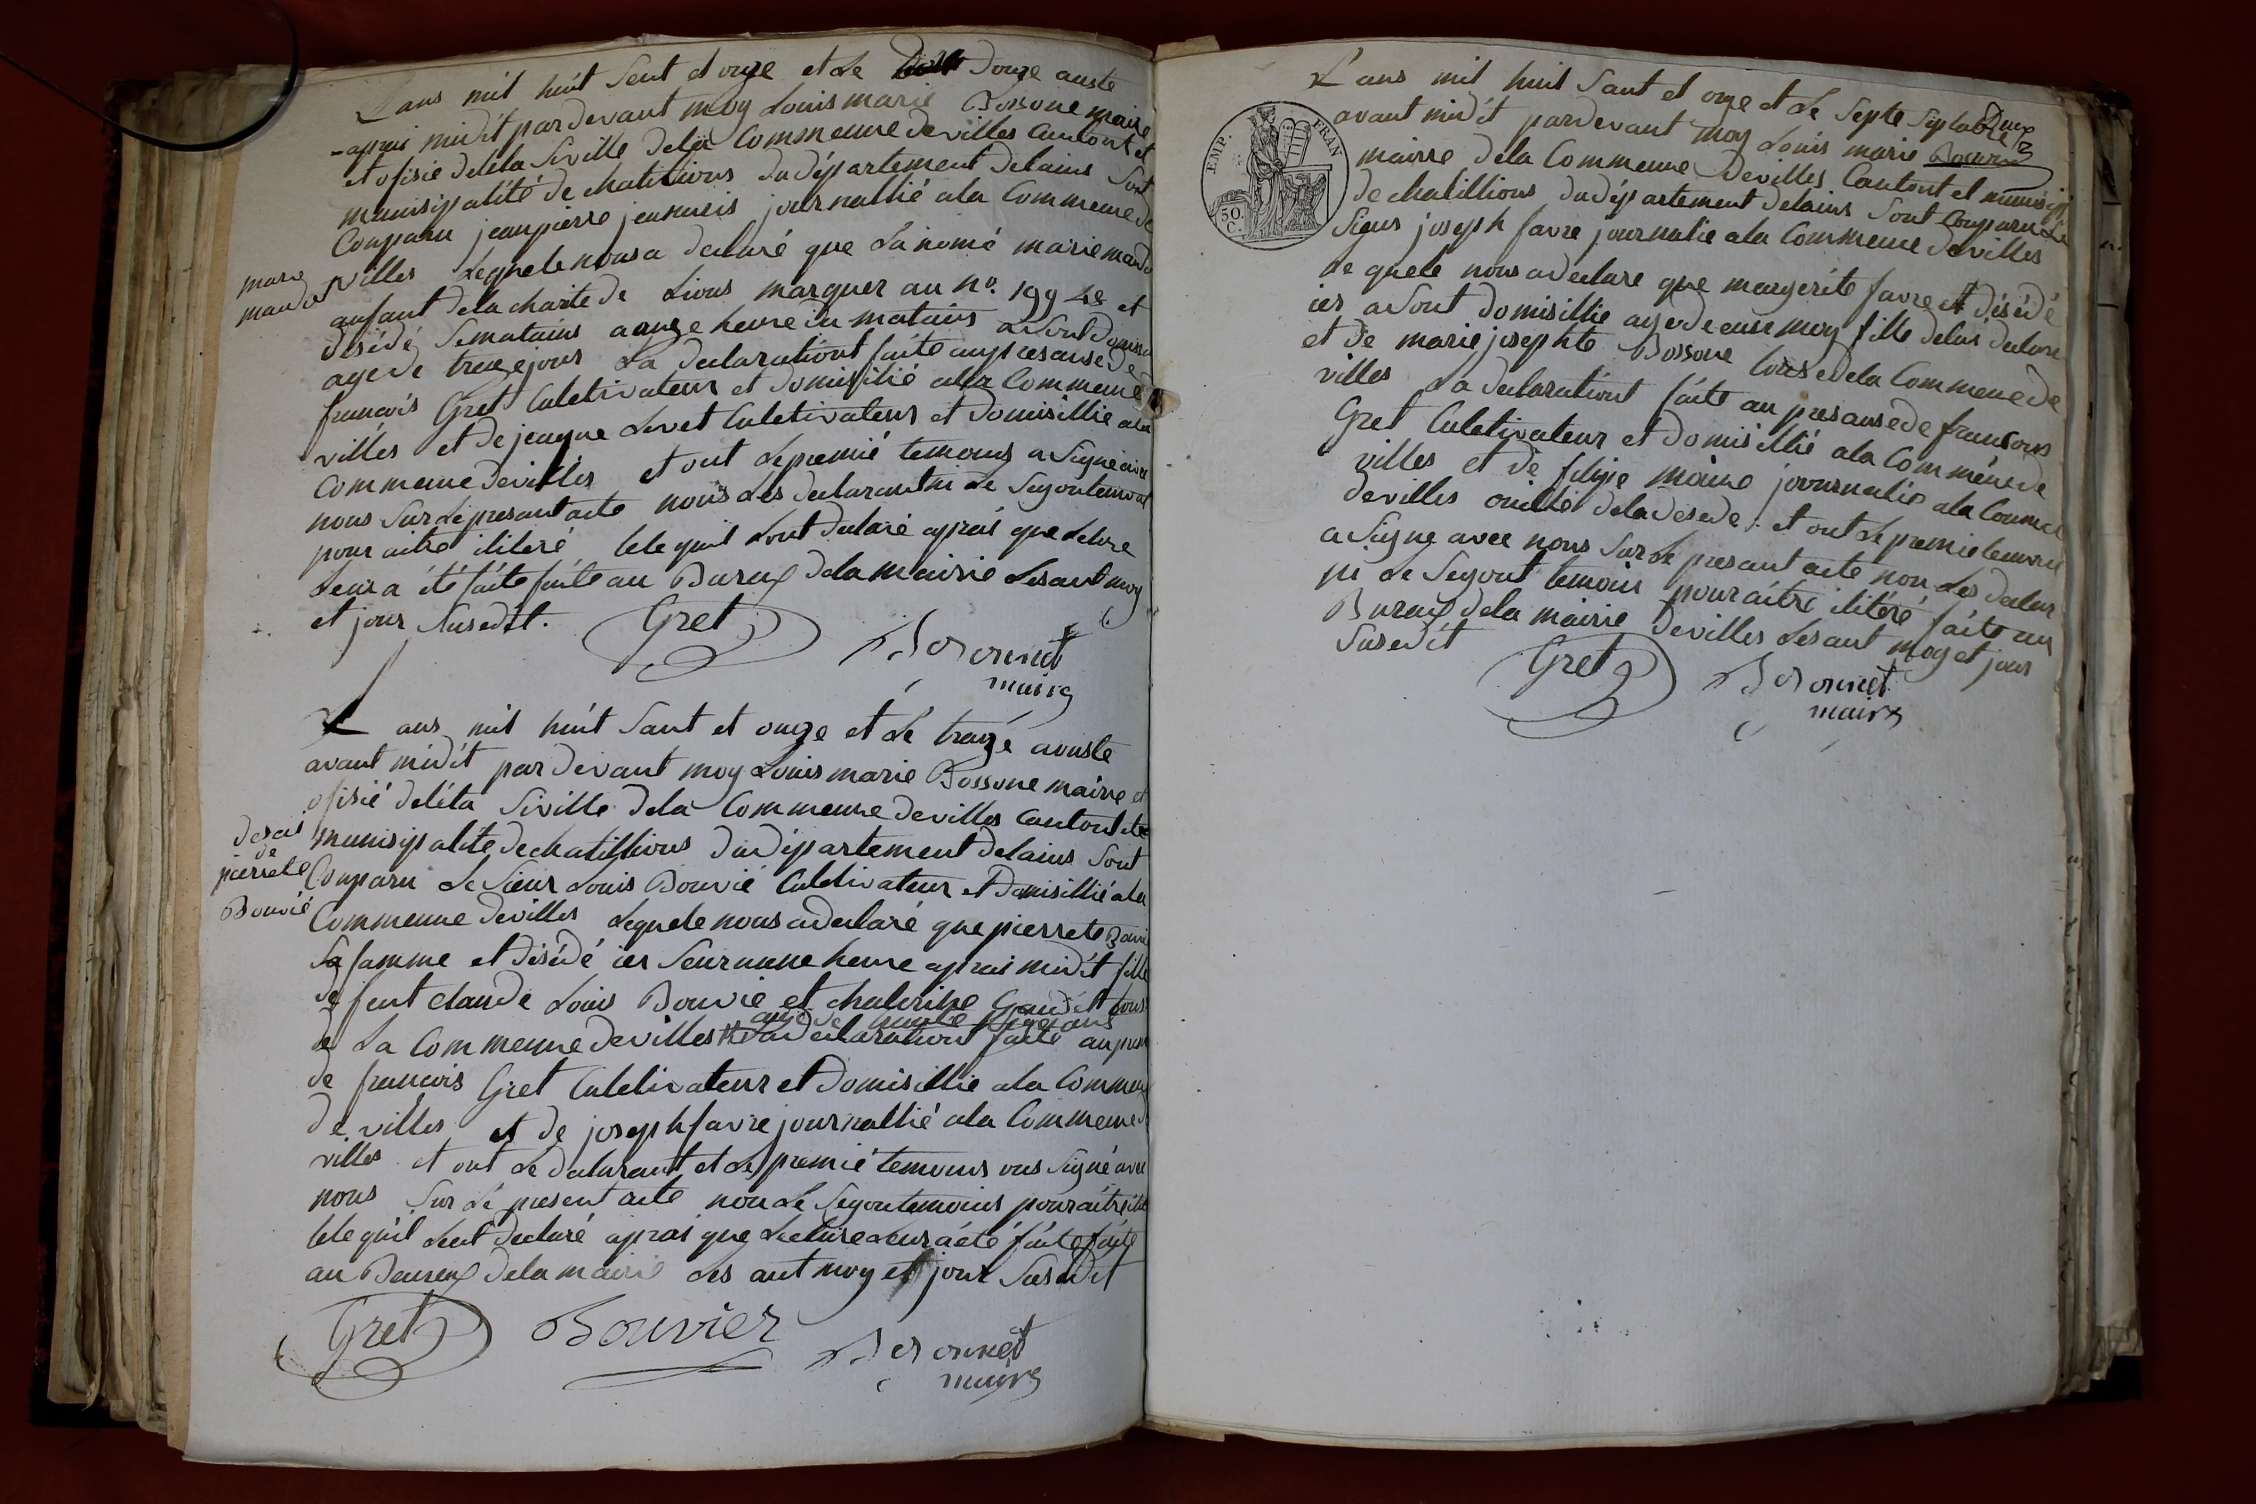 L'ans mil huit Sent et onze et Le douze auste
apres midit par devant moy Louis marie Bossone maire
et ofisie deleta Siville dela Commeune devilles Cantont et
munisipalité de chatillions du département delains Sont
Conparu jean pierre journallié ala Commeune de
villes Lequele nous a declaré que La nomé marie
marie
anfant dela charite de Lious marquer au no. 199 et
désédé Sematains a onze heure du matains
agede treze jours La declarationt faite aupresanse de
francois Gret Culetivateur et domisilié ala Commeune de
villes et de Levet Culetivateur et domisillie ala
Commeune devilles et ont Lepremié temouns a Signé avec
nous Sur Le presant acte nous Les declarant ni Le Segontemoins
pour aitre ilitéré lele quil Lont declaré aprais que Lecture
Leur a été faite faite au Bureux dela mairie Lesant moy
et jour Susedit.
Gret
Bosonnet
maire
L'ans mil huit Sant et onze et Le treze auuste
avant midit par devant moy Louis marie Bossone mairre et
ofisié deléta Siville dela Commeune devilles Cantont et
desais
de
pierrete
Bouvié
munisipalite de chatillions du département delains Sont
Conparu Le Sieur Louis Bouvié Culetivateur et Domisillié ala
Commeune devilles Lequele nous a declaré que pierrete Bouvié
Sa famme et désédé ier Seur heure aprais midit fille
de feut claude Louis Bouvie et chaterine tous
de La Commeune devilles La declarationt faite
agé de ans
de francois Gret Culetivateur et Domisillie ala Commeune
de villes et de joseph favre journallié ala Commeune de
villes et ont Le declarant et Le premié temouns ons Signé avec
nous Sur Le present acte non Le Segontemoins pour aitre
lele quil Lont declaré aprais que Lecture Leur a été faite faite
au Beureux dela mairie Les ant moy et jour Susedit
Gret Bouvier Bosonnet
maire
L'ans mil huit Sant et onze et Le Septe Septabre
avant midit pardevant moy Louis marie
mairre dela Commeune devilles Cantont et munisip
de chatillions du département delains Sont Conparu Le
Sieur joseph favre journalie ala Commeune devilles
Le quele nous a declare que margerite favre et désédé
ier domisillie agede moy fille delui declare
et de marie josephte Bossone dela Commeune de
villes La declarationt faite au presanse de francois
Gret Culetivateur et domisillié ala Commeune de
villes et de filipe moine journalie ala Commeune
devilles dela désede et ont Le premie temoin
a Signe avec nous Sur Le presant acte non Les declar
ni Le Segont temoin pour aitre ilitéré faite au
Bureux dela mairie devilles Lesant moy et jour
Susedit
Gret Bosonnet
maire
EMP. FRAN
50.
C.